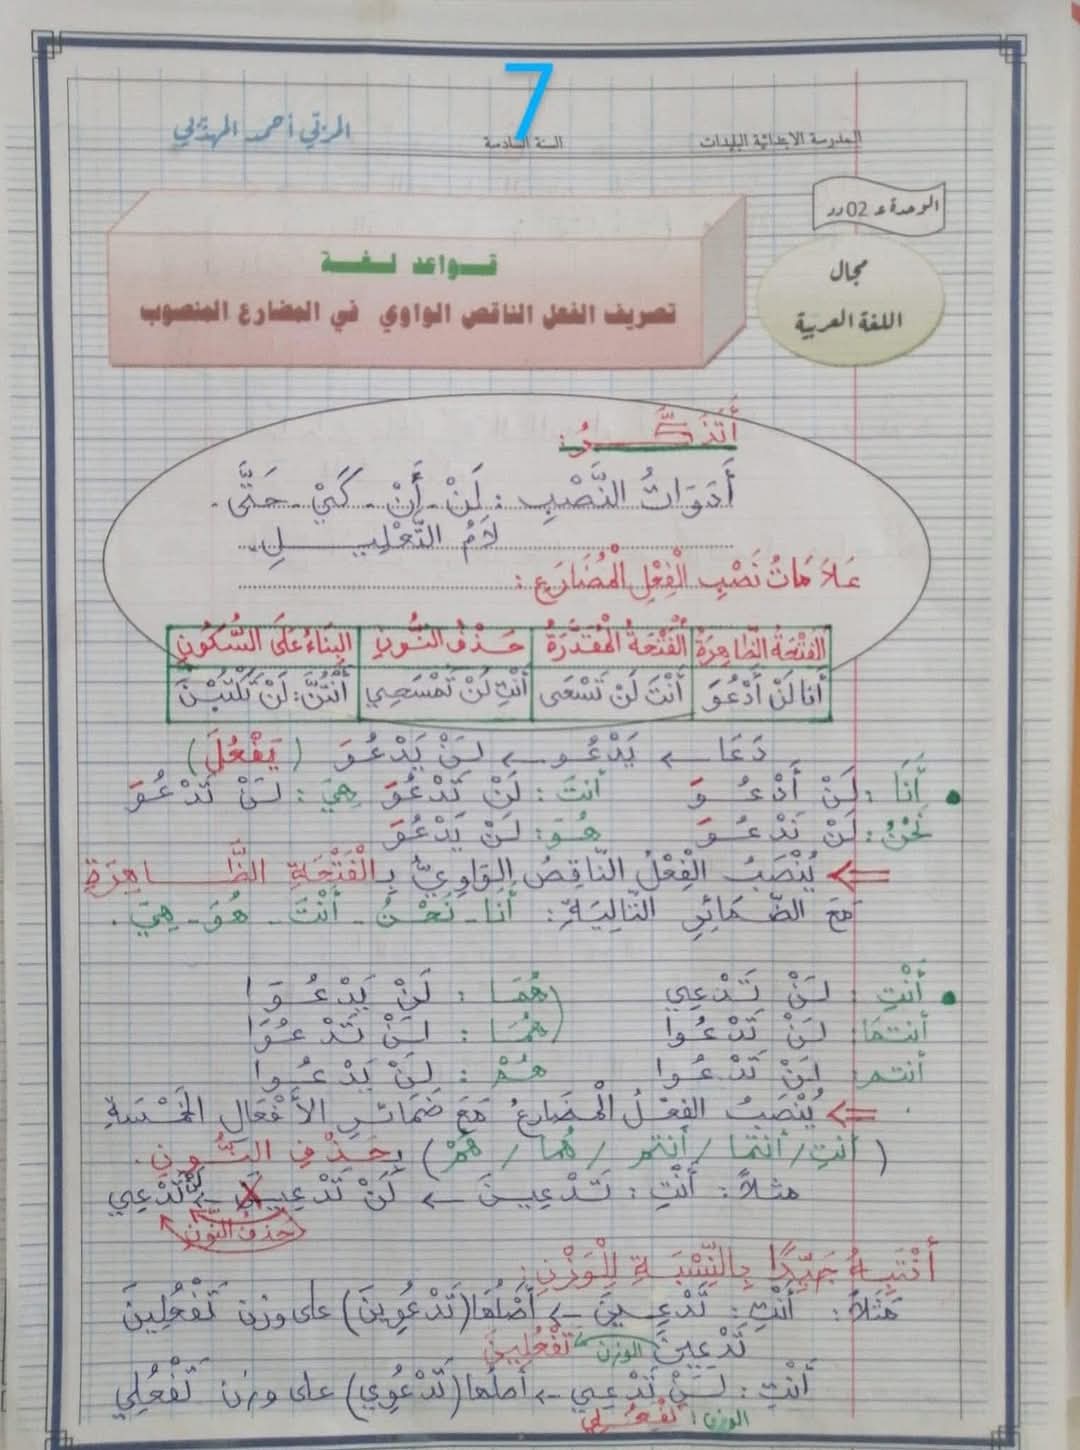 7
المدرسة الابتدائية البليدات
السنة السادسة
المربّي أحمد المهذّبي
الوحدة عـ02ـدد
مجال
اللغة العربية
قواعد لغة
تصريف الفعل الناقص الواوي في المضارع المنصوب
أَتَذَكَّـــرُ:
أَدَوَاتُ النَّصْبِ : لَنْ - أَنْ - كَيْ - حَتَّى -
لَامُ التَّعْلِيـــلِ.
عَلَامَاتُ نَصْبِ الْفِعْلِ الْمُضَارِعِ :
الفَتْحَةُ الظَّاهِرَةُ الْفَتْحَةُ الْمُقَدَّرَةُ حَذْفُ النُّونِ البِنَاءُ عَلَى السُّكُونِ
أَنَا لَنْ أَدْعُوَ أَنْتَ لَنْ تَسْعَى أَنْتِ لَنْ تَمْسَحِي أَنْتُنَّ: لَنْ تَكْتُبْنَ
دَعَا ← يَدْعُو ← لَنْ يَدْعُوَ (يَفْعُلَ)
• أَنَا : لَنْ أَدْعُوَ أنتَ : لَنْ تَدْعُوَ هِيَ : لَنْ تَدْعُوَ
نَحْنُ : لَنْ نَدْعُوَ هُوَ : لَنْ يَدْعُوَ
⇐ يُنْصَبُ الْفِعْلُ النَّاقِصُ الوَاوِيُّ بِالْفَتْحَةِ الظَّـــاهِرَةِ
مَعَ الضَّمَائِرِ التَّالِيَةِ : أَنَا - نَحْنُ - أَنْتَ - هُوَ - هِيَ .
• أَنْتِ : لَنْ تَدْعِي (هُمَا : لَنْ يَدْعُوَا
أنتما : لَنْ تَدْعُوا (هُمَا : لَنْ تَدْعُوَا
أنتم : لَنْ تَدْعُوا هُمْ : لَنْ يَدْعُوا
⇐ يُنْصَبُ الفِعْلُ الْمُضَارِعُ مَعَ ضَمَائِرِ الأَفْعَالِ الْخَمْسَةِ
(أنتِ / أنتما / أنتم / هُما / هُمْ) بِحَذْفِ النُّونِ.
مثلاً : أَنْتِ : تَدْعِيـنَ ← لَنْ تَدْعِيـنَ ← لَنْ تَدْعِي
حذف النون
أَنْتَبِهُ جَيِّدًا بِالنِّسْبَةِ لِلْوَزْنِ:
مَثَلاً : أَنْتِ : تَدْعِينَ ← أَصْلُهَا (تَدْعُوِينَ) على وزن تَفْعُلِينَ
تَدْعِينَ الوزن تَفْعُلِينَ
أَنْتِ : لَنْ تَدْعِي ← أصلها (تَدْعُوِي) على وزن تَفْعُلِي
الوزن : تَفْعُـلِي